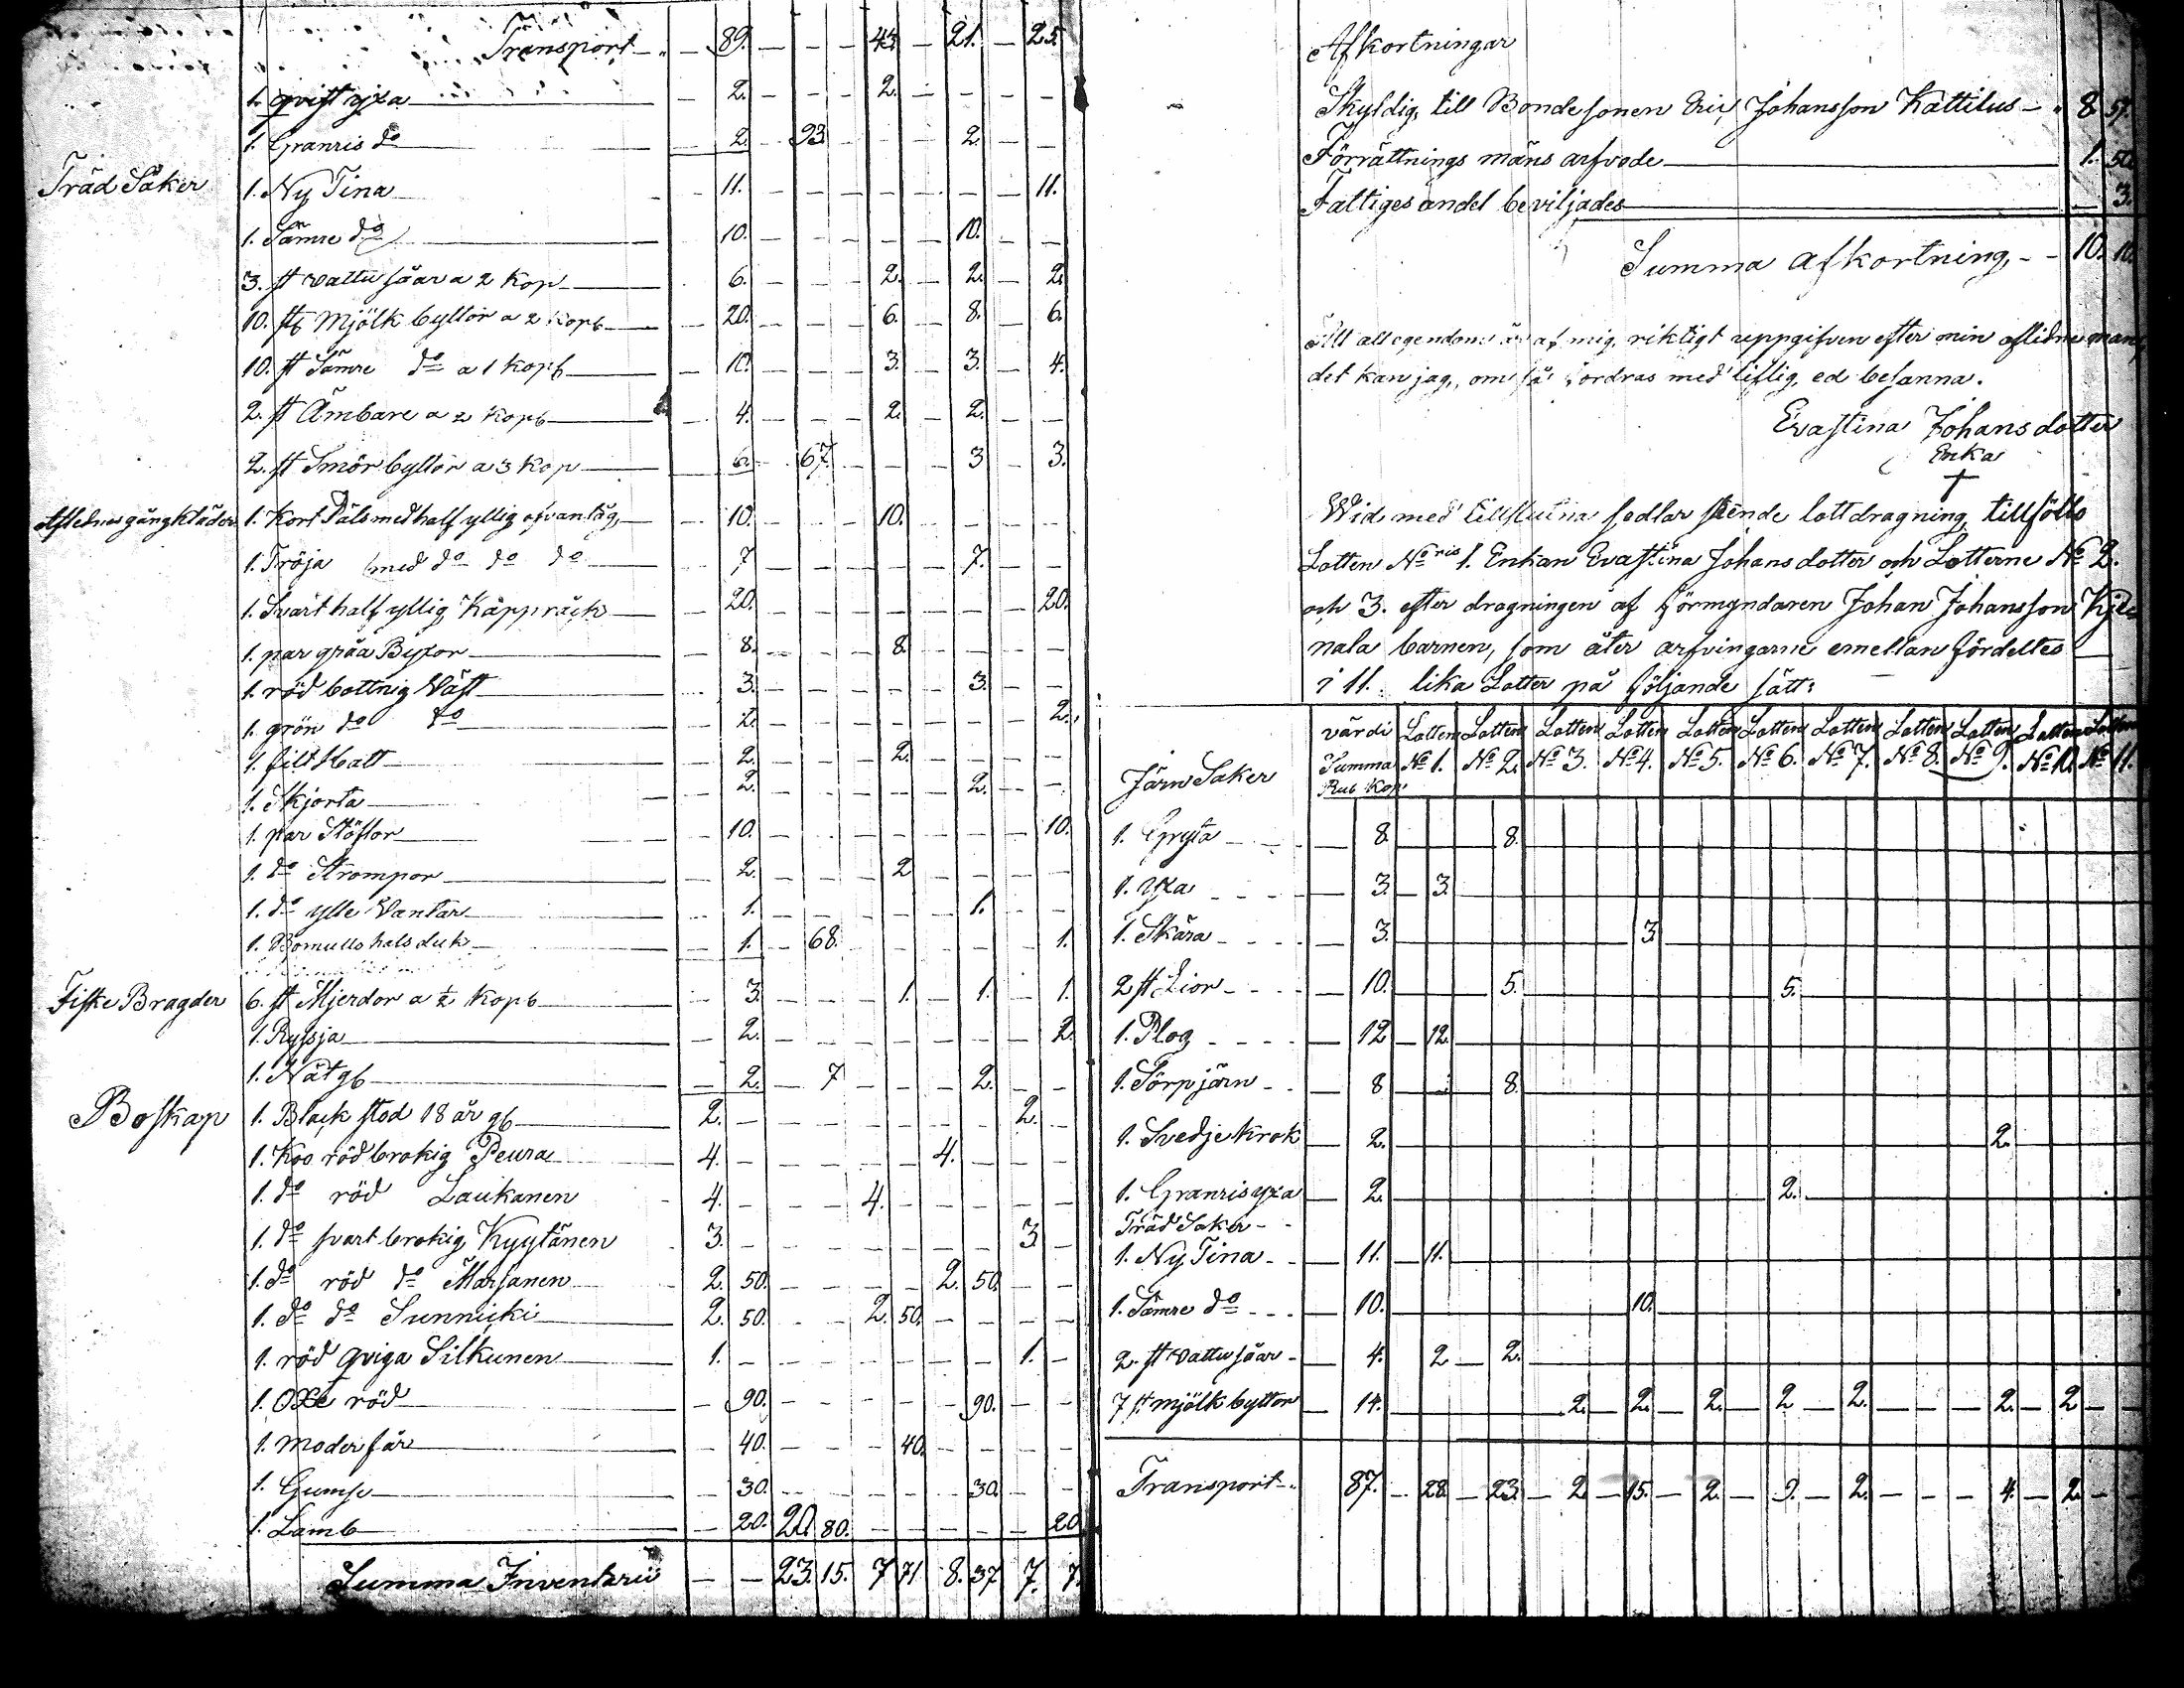 Transport — 89. — — — 43. — 21. — 25.
1. qvist yxa — 2. — — — 2. — — — —
1. Granris do — 2. — 93. — — — 2. — —
Träd Saker 1. Ny Tina — 11. — — — — — — — 11.
1. Sämre do — 10. — — — — — 10. — —
3. st vattu såar a 2 Kop — 6. — — — 2. — 2. — 2.
10. st mjölk byttor a 2 kop — 20. — — — 6. — 8. — 6.
10. st Sämre do a 1 kop — 10. — — — 3. — 3. — 4.
2. st Ämbare a 2 kop — 4. — — — 2. — 2. — —
2. st Smör byttor a 3 Kop — 6. — 67. — — — 3 — 3.
Aflednes gångkläder 1. Kort Päls med half yllig ofvantåg — 10. — — — 10. — — — —
1. Tröja med do do do — 7 — — — — — 7. — —
1. Svart half yllig Kappråck — 20. — — — — — — — 20.
1. par gråa Byxor — 8. — — — 8. — — — —
1. röd bottnig Väst — 3. — — — — — 3. — —
1. grön do do — 2. — — — — — — — 2.
1. filt Hatt — 2. — — — 2. — — — —
1. Skjorta — 2. — — — — — 2. — —
1. par Stöflor — 10. — — — — — — — 10.
1. do Strompor — 2. — — — 2 — — — —
1. do ylle Vantar — 1. — — — — — 1. — —
1. Bomulls hals duk — 1. — 68. — — — — — 1.
Fiske Bragder 6. st Mjerdor a ½ Kop — 3. — — — 1. — 1. — 1.
1. Ryssja — 2. — — — — — — — 2.
1. Nät gb — 2. — 7 — — — 2. — —
Boskap 1. Black stod 18 år gb — 2. — — — — — — — 2. —
1. Koo röd brokig Peura — 4. — — — — — 4. — — —
1. do röd Laukanen — 4. — — — 4. — — — — —
1. do svart brokig Kyytänen — 3. — — — — — — — 3. —
1. do röd do Marjanen — 2. 50. — — — — 2. 50. — —
1. do do Sunnicki — 2. 50. — — 2. 50. — — — —
1. röd qviga Silkunen — 1. — — — — — — — 1. —
1. Oxe röd — 90. — — — — — 90. — —
1. moder får — 40. — — — 40. — — — —
1. Gumse — 30. — — — — — 30. — —
1. Lamb — 20. 20. 80. — — — — — 20
Summa Inventarii — — 23. 15. 7 71 8. 37 7. 7.
Afkortningar
Skyldig, till Bondesonen Eric Johansson Kattilus — 8 57.
Förrättnings mäns arfvode — 1. 50.
Fattiges andel beviljades — 3.
Summa afkortning, — 10. 10.
Att all egendom är af mig riktigt uppgifven efter min aflidne man,
det kan jag, om så fordras med liflig ed besanna.
Evastina Johansdotter
Enka
Wid med tillslutna sedlar skende lottdragning, tillföllo
Lotten No ris 1. Enkan Evastina Johansdotter och Lotterne No 2.
och 3. efter dragningen af förmyndaren Johan Johansson
nala barnen, som åter arfvingarne emellan fördeltes
i 11. lika Lotter på följande sätt:
Järn Saker värdi Summa Rub Kop Lotten No 1. Lotten No 2. Lotten No 3. Lotten No 4. Lotten No 5. Lotten No 6. Lotten No 7. Lotten No 8. Lotten No 9. Lotten No 10. Lotten No 11.
1. Gryta — 8. 8.
1. Yxa — 3. — 3.
1. Skära — 3. 3.
2 st Lior — 10. 5. 5.
1. Plog — 12 — 12.
1. Sörpjärn — 8 8.
1. Svedje krok — 2. 2.
1. Granris yxa — 2. 2.
Träd Saker
1. Ny Tina — 11. — 11.
1. Sämre do — 10. 10.
2. st vattu såar — 4. 2 — 2.
7 st mjölk byttor — 14. 2. — 2. — 2. — 2 — 2. — — — 2. — 2 — —
Transport — 87. — 28. — 23. — 2. — 15. — 2. — 9. — 2. — — — 4. — 2. — —